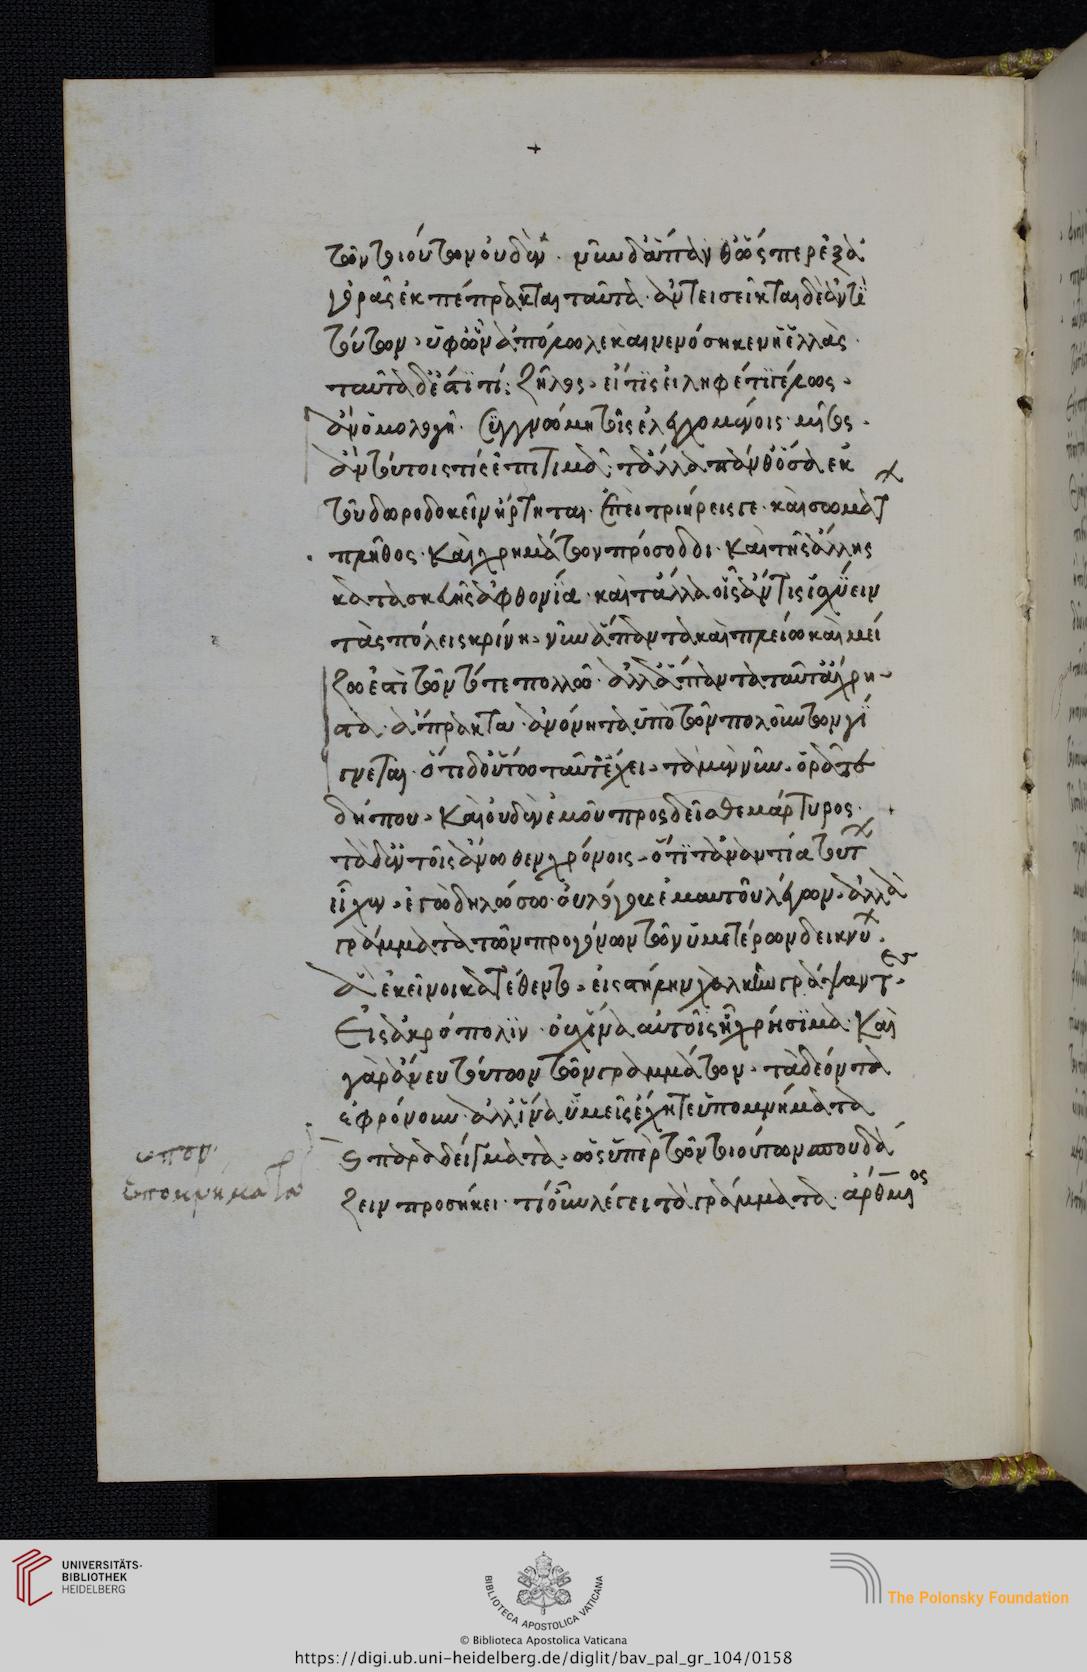 +
τῶν τοιούτων οὐδέν. νῦν δ' ἅπανθ' ὥσπερ ἐξ ἀ
γορᾶς ἐκπέπρακται ταῦτα. ἀντεισεῖκται δὲ ἀντὶ
τούτων, ὑφ' ὧν ἀπόλωλε καὶ νενόσηκεν ἡ ἑλλάς.
ταῦτα δέ ἐστι τί; ζῆλος, εἴ τις εἴληφέ τι· γέλως,
ἂν ὁμολογῇ. συγγνώμη τοῖς ἐλεγχομένοις. μῖσος,
ἂν τούτοις τίς ἐπιτιμᾷ; τἆλλα πάνθ' ὅσα ἐκ
τοῦ δωροδοκεῖν ἤρτηται. ἐπεὶ τριήρεις γε. καὶ σωμάτ
πλῆθος. καὶ χρημάτων πρόσοδοι. καὶ τῆς ἄλλης
κατασκευῆς ἀφθονία. καὶ τἄλλα οἷς ἄν τις ἰσχύειν
τὰς πόλεις κρίνῃ, νῦν ἅπαντα καὶ πλείω καὶ μεί
ζω ἐστὶ τῶν τότε πολλῷ. ἀλλ' ἅπαντα ταῦτ' ἄχρη
στα. ἄπρακτα. ἀνόνητα ὑπὸ τῶν πωλούντων γί
γνεται. ὅτι δ' οὕτω ταῦτ' ἔχει, τὰ μὲν νῦν, ὁρᾶτε
δήπου, καὶ οὐδὲν ἐμοῦ προσδεῖσθε μάρτυρος.
τὰ δ' ἐν τοῖς ἄνωθεν χρόνοις, ὅτι τἀναντία τούτ
εἶχεν, ἐγὼ δηλώσω. οὐ λόγους ἐμαυτοῦ λέγων, ἀλλὰ
γράμματα τῶν προγόνων τῶν ὑμετέρων δεικνύ.
ἃ ἐκεῖνοι κατέθεντο, εἰς στήλην χαλκῆν γράψαντες,
εἰς ἀκρόπολιν. οὐχ ἵνα αὐτοῖς ᾖ χρήσιμα. καὶ
γὰρ ἄνευ τούτων τῶν γραμμάτων, τὰ δέοντα
ἐφρόνουν. ἀλλ' ἵνα ὑμεῖς ἔχητε ὑπομνήματα
καὶ παραδείγματα, ὡς ὑπὲρ τῶν τοιούτων σπουδά
ζειν προσήκει. τί οὖν λέγει τὰ γράμματα. ἄρθμιος
ὑπομνήματα
UNIVERSITÄTS-
BIBLIOTHEK
HEIDELBERG
BIBLIOTECA APOSTOLICA VATICANA
The Polonsky Foundation
© Biblioteca Apostolica Vaticana
https://digi.ub.uni-heidelberg.de/diglit/bav_pal_gr_104/0158